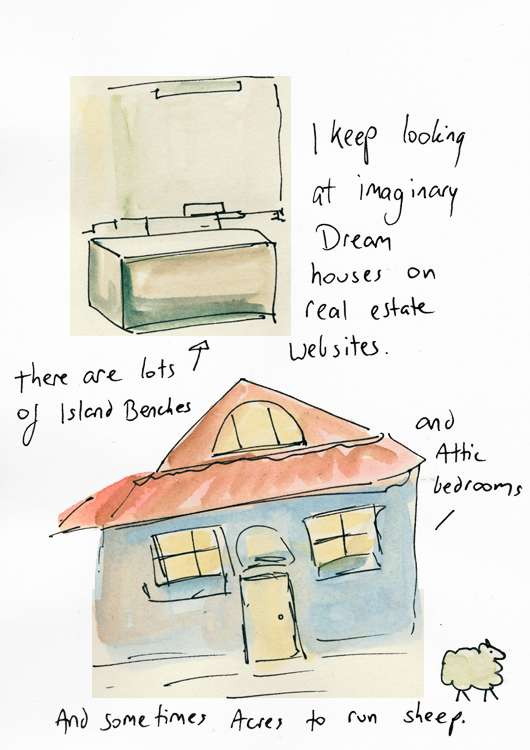 I keep looking
at imaginary
Dream
houses on
real estate
websites.
there are lots
of Island Benches
and
Attic
bedrooms
And sometimes Acres to run sheep.